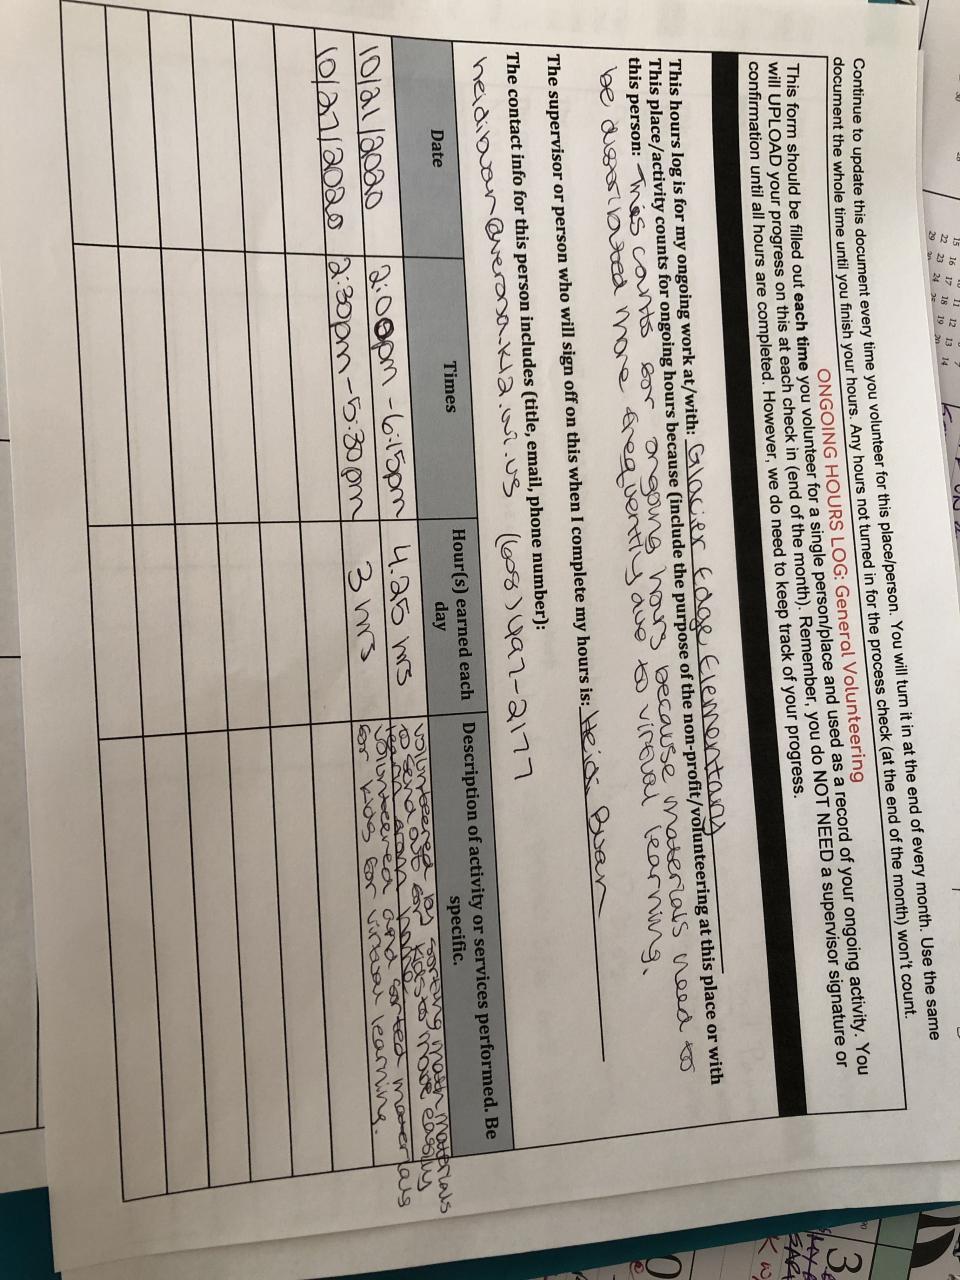 Continue to update this document every time you volunteer for this place/person. You will turn it in at the end of every month. Use the same
document the whole time until you finish your hours. Any hours not turned in for the process check (at the end of the month) won't count.
ONGOING HOURS LOG: General Volunteering
This form should be filled out each time you volunteer for a single person/place and used as a record of your ongoing activity. You
will UPLOAD your progress on this at each check in (end of the month). Remember, you do NOT NEED a supervisor signature or
confirmation until all hours are completed. However, we do need to keep track of your progress.
This hours log is for my ongoing work at/with: Glacier Edge Elementary
This place/activity counts for ongoing hours because (include the purpose of the non-profit/volunteering at this place or with
this person: This counts for ongoing hours because materials need to
be distributed more frequently due to virtual learning.
The supervisor or person who will sign off on this when I complete my hours is: Heidi
The contact info for this person includes (title, email, phone number):
(608) 497-2177
Date Times Hour(s) earned each day Description of activity or services performed. Be specific.
10/21/2020 2:00pm - 6:15pm 4.25 hrs volunteered by sorting math materials
to send out for kids to more easily
learn from home
10/27/2020 2:30pm - 5:30pm 3 hrs volunteered and sorted materials
for kids for virtual learning.